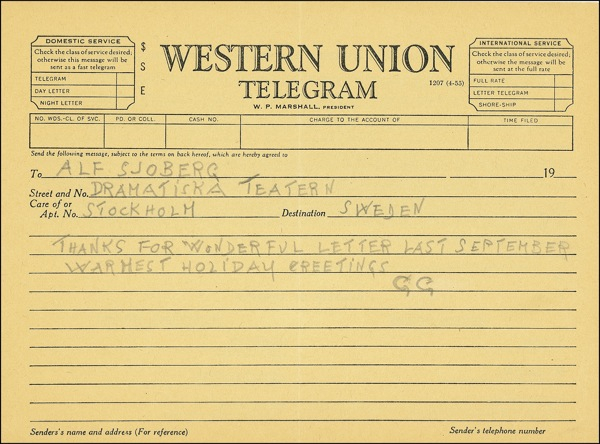 DOMESTIC SERVICE
Check the class of service desired;
otherwise this message will be
sent as a fast telegram
TELEGRAM
DAY LETTER
NIGHT LETTER
$
S
E
WESTERN UNION
TELEGRAM
W. P. MARSHALL, PRESIDENT
1207 (4-55)
INTERNATIONAL SERVICE
Check the class of service desired;
otherwise the message will be
sent at the full rate
FULL RATE
LETTER TELEGRAM
SHORE-SHIP
NO. WDS.-CL. OF SVC. PD. OR COLL. CASH NO. CHARGE TO THE ACCOUNT OF TIME FILED
Send the following message, subject to the terms on back hereof, which are hereby agreed to
To ALF SJOBERG 19
Street and No. DRAMATISKA TEATERN
Care of or
Apt. No. STOCKHOLM Destination SWEDEN
THANKS FOR WONDERFUL LETTER LAST SEPTEMBER
WARMEST HOLIDAY GREETINGS
GG
Senders's name and address (For reference) Sender's telephone number